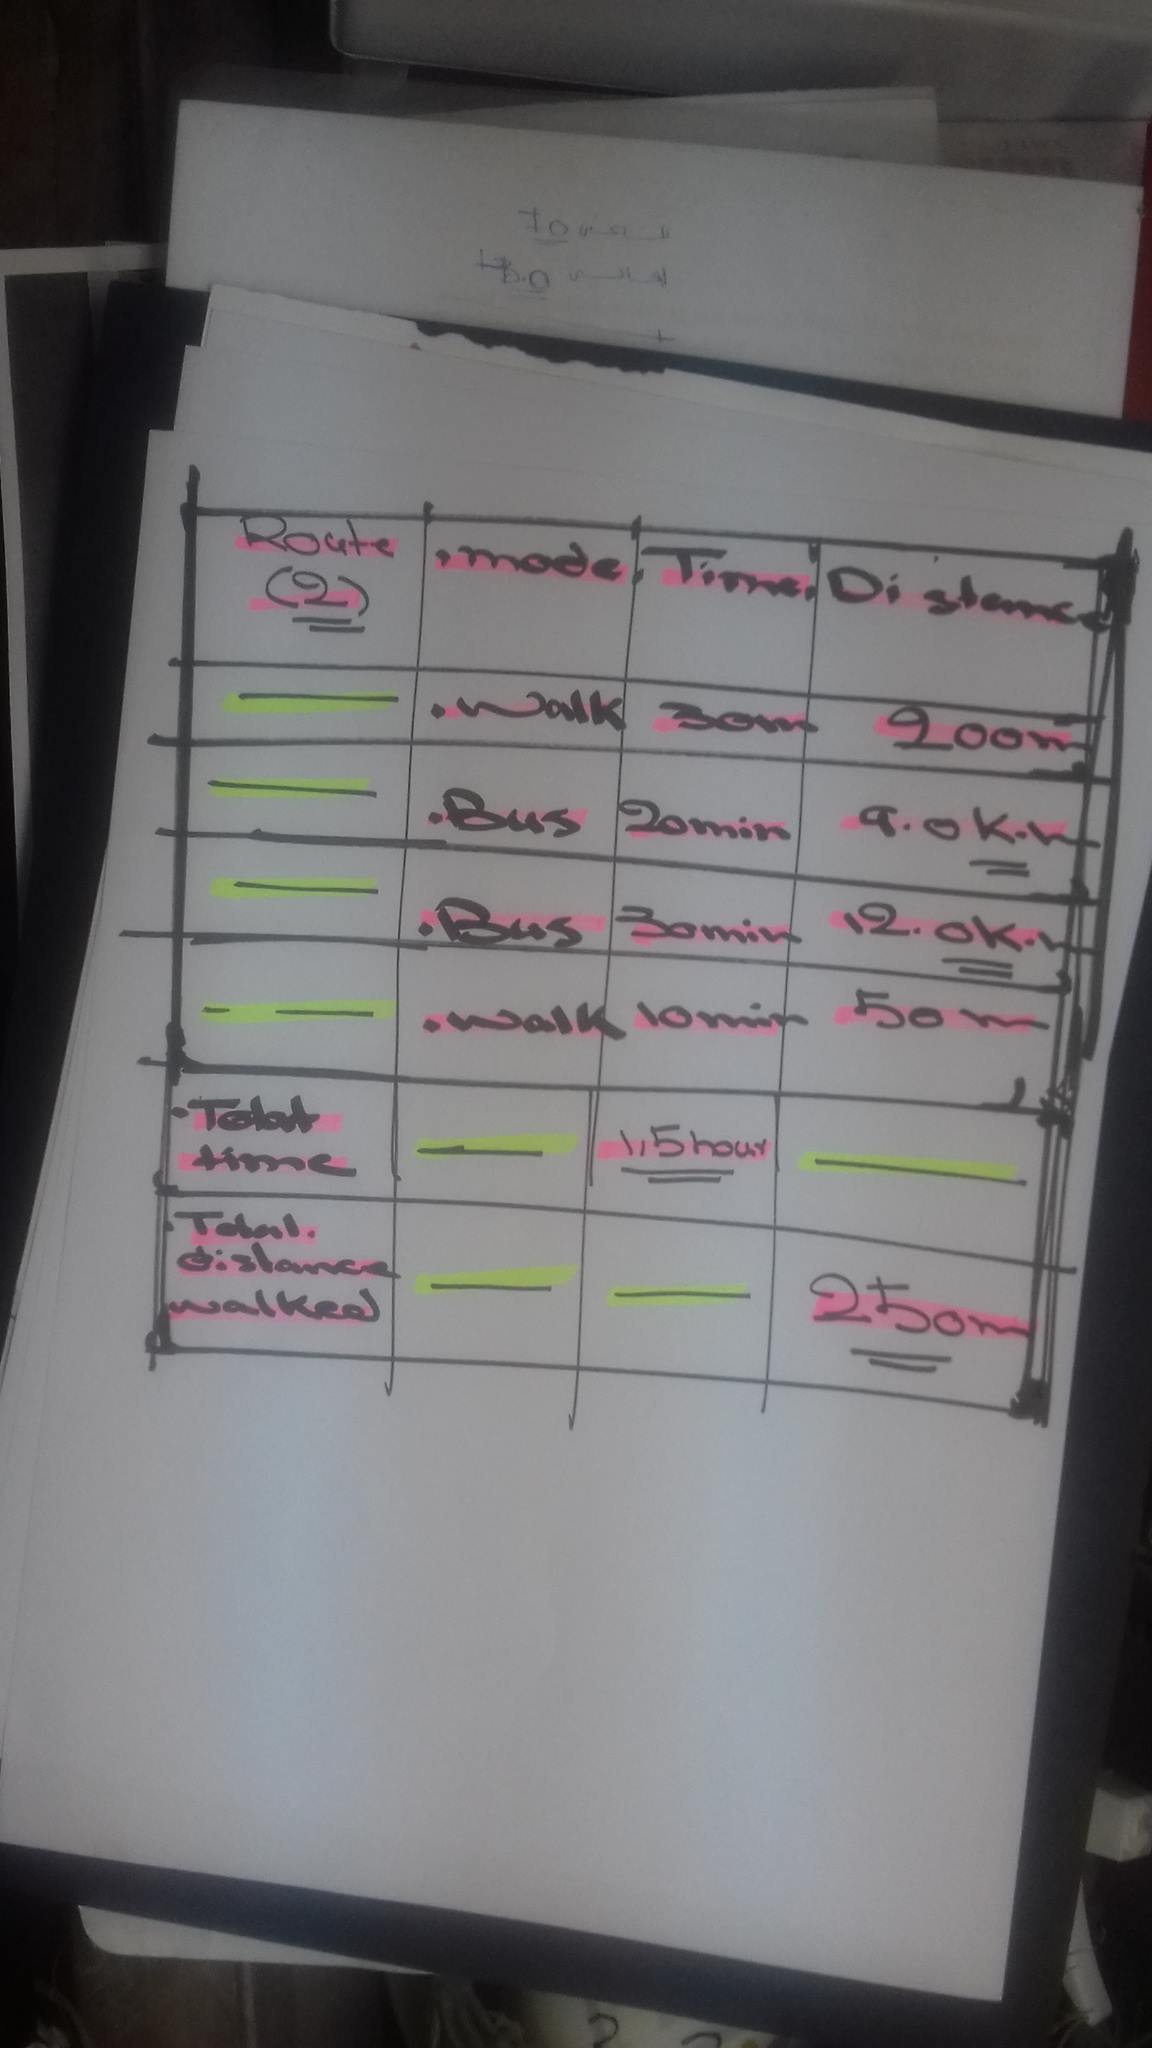 Route
(2)
.mode. Time. Distance
— .walk 30m 200m
— .Bus 20min 9.0k.m
— .Bus 30min 12.0k.m
— — .walk 10min 50m
.Total
time — 1,5hour —
.Total.
distance
walked — — 250m